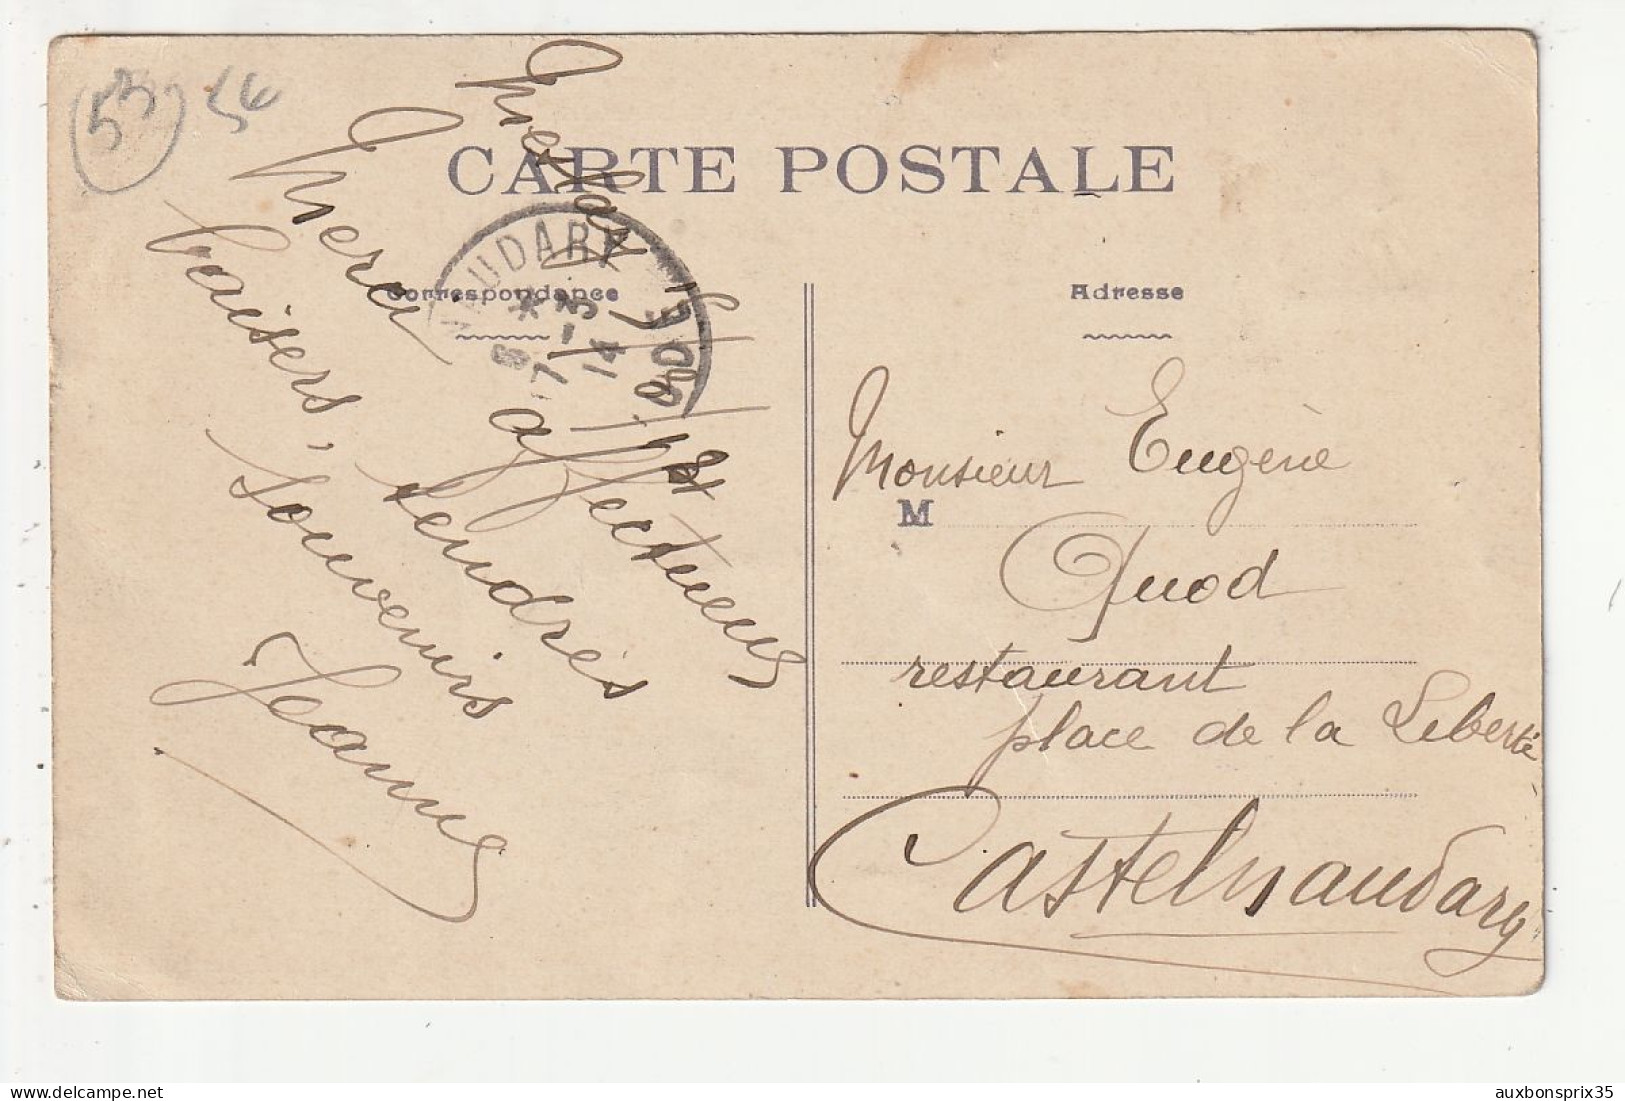 53 56
CARTE POSTALE
Correspondance
Adresse
NAUDARY
AUDE
8 *
7 - 3
14
Meslay
Merci affectueux
baisers, tendres
souvenirs
Jeanne
Monsieur Eugène
M
Quod
restaurant
place de la Liberté
Castelnaudary
auxbonsprix35